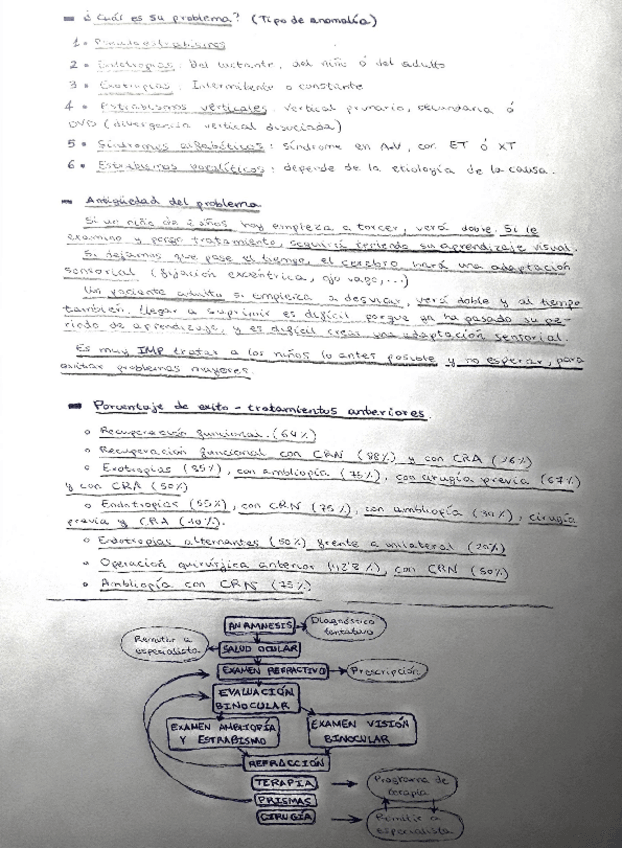 ¿Cuál es su problema? (Tipo de anomalía)
1. Pseudoestrabismos
2. Endotropias: Del lactante, del niño ó del adulto
3. Exotropias: Intermitente o constante
4. Estrabismos verticales: vertical primario, secundaria ó
DVD (divergencia vertical disociada)
5. Síndromes alfabéticos: síndrome en A ó V, con ET ó XT
6. Estrabismos paralíticos: depende de la etiología de la causa.
Antigüedad del problema
Si un niño de 2 años hoy empieza a torcer, verá doble. Si le
examino y pongo tratamiento, seguirá teniendo su aprendizaje visual.
Si dejamos que pase el tiempo, el cerebro hará una adaptación
sensorial (fijación excéntrica, ojo vago,...)
Un paciente adulto si empieza a desviar, verá doble y al tiempo
también. Llegar a suprimir es difícil porque ya ha pasado su pe-
riodo de aprendizaje, y es difícil crear una adaptación sensorial.
Es muy IMP tratar a los niños lo antes posible y no esperar, para
evitar problemas mayores.
Porcentaje de exito - tratamientos anteriores.
Recuperación funcional. (64%)
Recuperación funcional con CRN (88%) y con CRA (36%)
Exotropias (85%), con ambliopía (75%), con cirugía previa (67%)
y con CRA (50%)
Endotropias (55%), con CRN (75%), con ambliopía (30%), cirugía
previa y CRA (10%).
Endotropias alternantes (50%) frente a unilateral (20%)
Operación quirúrgica anterior (42'8%), con CRN (50%)
Ambliopía con CRN (75%)
ANAMNESIS
Diagnóstico
tentativo
Remitir a
especialista
SALUD OCULAR
EXAMEN REFRACTIVO
Prescripción
EVALUACIÓN
BINOCULAR
EXAMEN AMBLIOPÍA
Y ESTRABISMO
EXAMEN VISIÓN
BINOCULAR
REFRACCIÓN
TERAPIA
Programa de
terapia
PRISMAS
CIRUGÍA
Remitir a
especialista